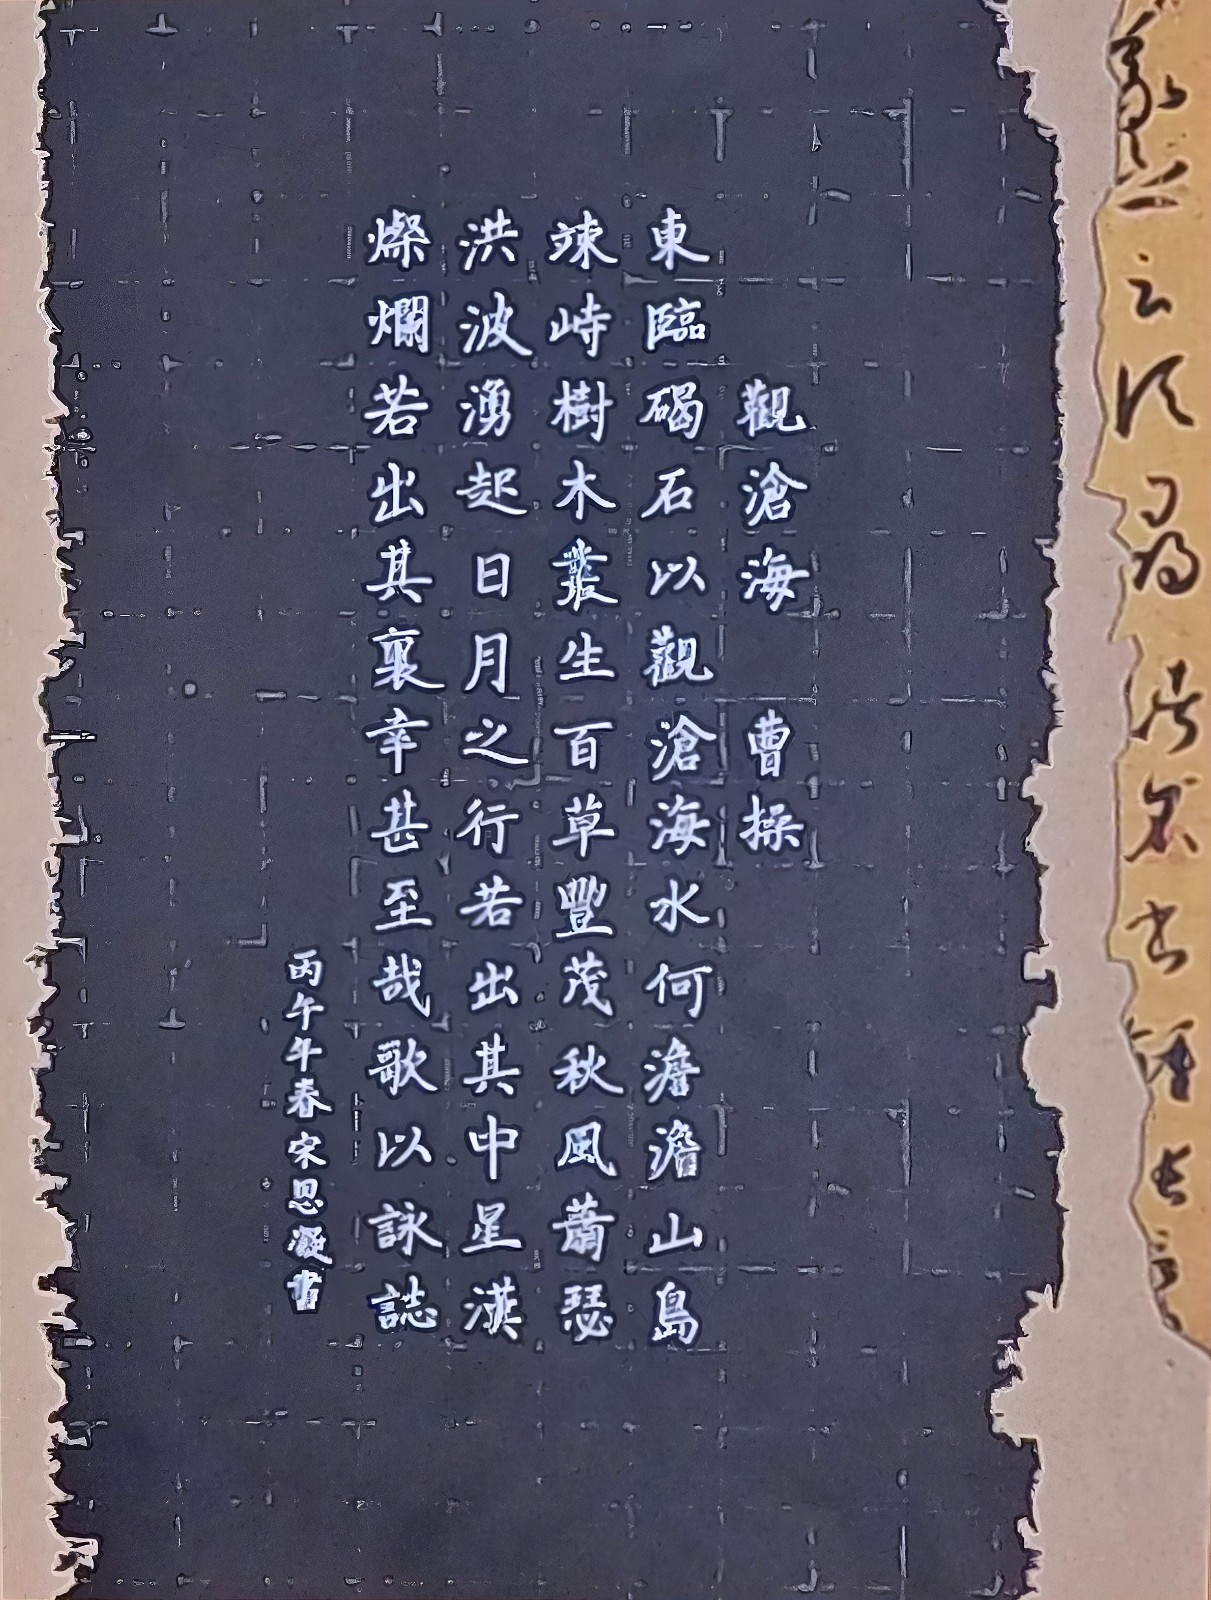 觀滄海 曹操
東臨碣石以觀滄海水何澹澹山島
竦峙樹木叢生百草豐茂秋風蕭瑟
洪波湧起日月之行若出其中星漢
燦爛若出其裏幸甚至哉歌以詠誌
丙午年春宋思凝書